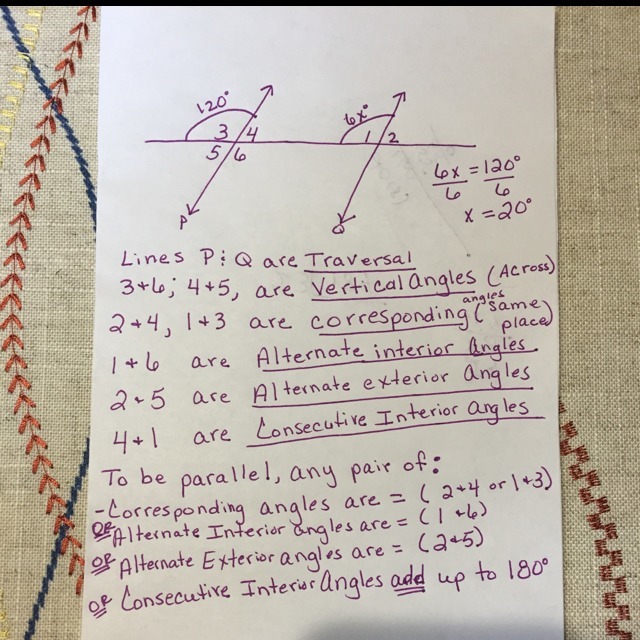 120°
3 4
5 6
P
6x°
1 2
Q
6x = 120°
6 6
x = 20°
Lines P & Q are Traversal
3+6; 4+5, are Vertical Angles (Across)
2+4, 1+3 are corresponding angles (same place)
1+6 are Alternate interior Angles
2+5 are Alternate exterior Angles
4+1 are Consecutive Interior Angles
To be parallel, any pair of:
-Corresponding angles are = (2+4 or 1+3)
OR Alternate Interior angles are = (1+6)
OR Alternate Exterior angles are = (2+5)
OR Consecutive Interior Angles add up to 180°